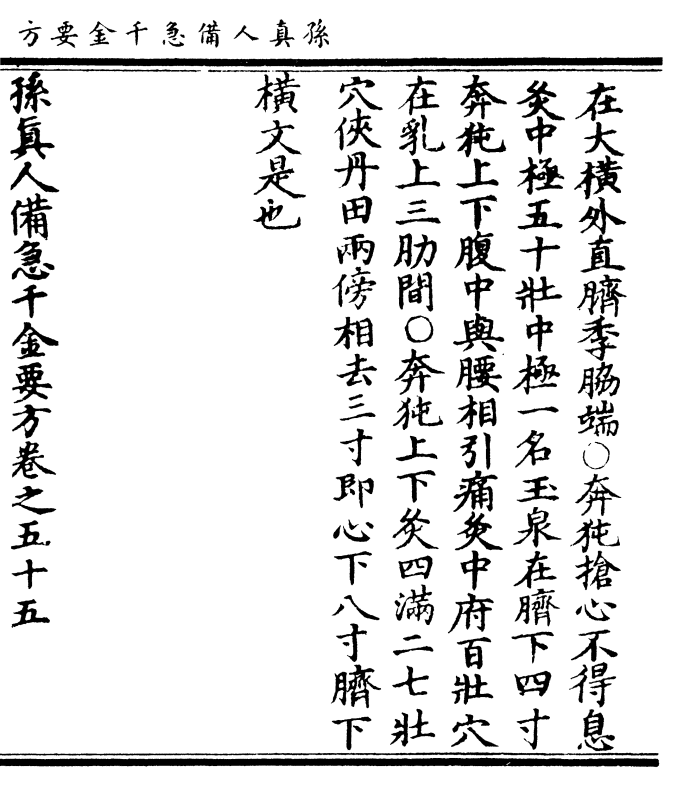 孫真人備急千金要方
在大橫外直臍季脇端○奔㹠搶心不得息
灸中極五十壯中極一名玉泉在臍下四寸
奔㹠上下腹中與腰相引痛灸中府百壯穴
在乳上三肋間○奔㹠上下灸四滿二七壯
穴俠丹田兩傍相去三寸即心下八寸臍下
橫文是也
孫真人備急千金要方卷之五十五